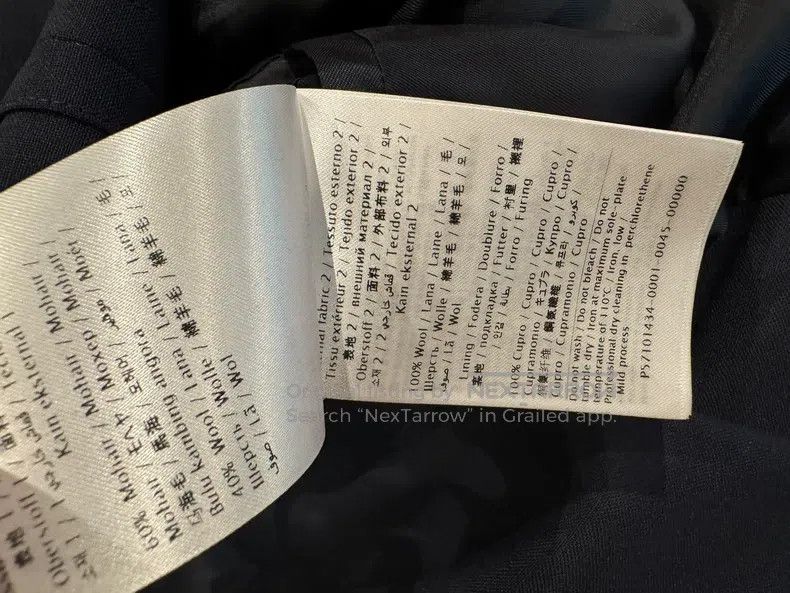 Oberstoff 1
소재 1 / 1 قماش خارجي
Kain eksternal 1
60% Mohair / Mohair / Mohair /
Mohair / モヘヤ / Мохер / Mohair
马海毛 / 馬海毛 / 모헤어 / موهير
Bulu kambing angora
40% Wool / Lana / Laine / Lana / 毛
Шерсть / Wolle / 綿羊毛 / 綿羊毛 / 모 /
صوف / Lã / Wol
fabric 2 / Tessuto esterno 2 /
Tissu extérieur 2 / Tejido exterior 2 /
表地 2 / внешний материал 2 /
Oberstoff 2 / 面料 2 / 外部布料 2 / 외부
소재 2 / 2 قماش خارجي / Tecido exterior 2 /
Kain eksternal 2
100% Wool / Lana / Laine / Lana / 毛 /
Шерсть / Wolle / 綿羊毛 / 綿羊毛 / 모 /
صوف / Lã / Wol
Lining / Fodera / Doublure / Forro /
裏地 / подкладка / Futter / 衬里 / 襯裡
/ 안감 / بطانة / Forro / Furing
100% Cupro / Cupro / Cupro / Cupro /
Cupramonio / キュプラ / Купро / Cupro /
铜氨纤维 / 銅氨纖維 / 큐프라 / كوبرو /
Cupro / Cupramonio / Cupro
Do not wash / Do not bleach / Do not
tumble dry / Iron at maximum sole-plate
temperature of 110°C / Iron, low /
Professional dry cleaning in perchlorethene
Mild process
P57101434-0001-0045-00000
Search "NexTarrow" in Grailed app.